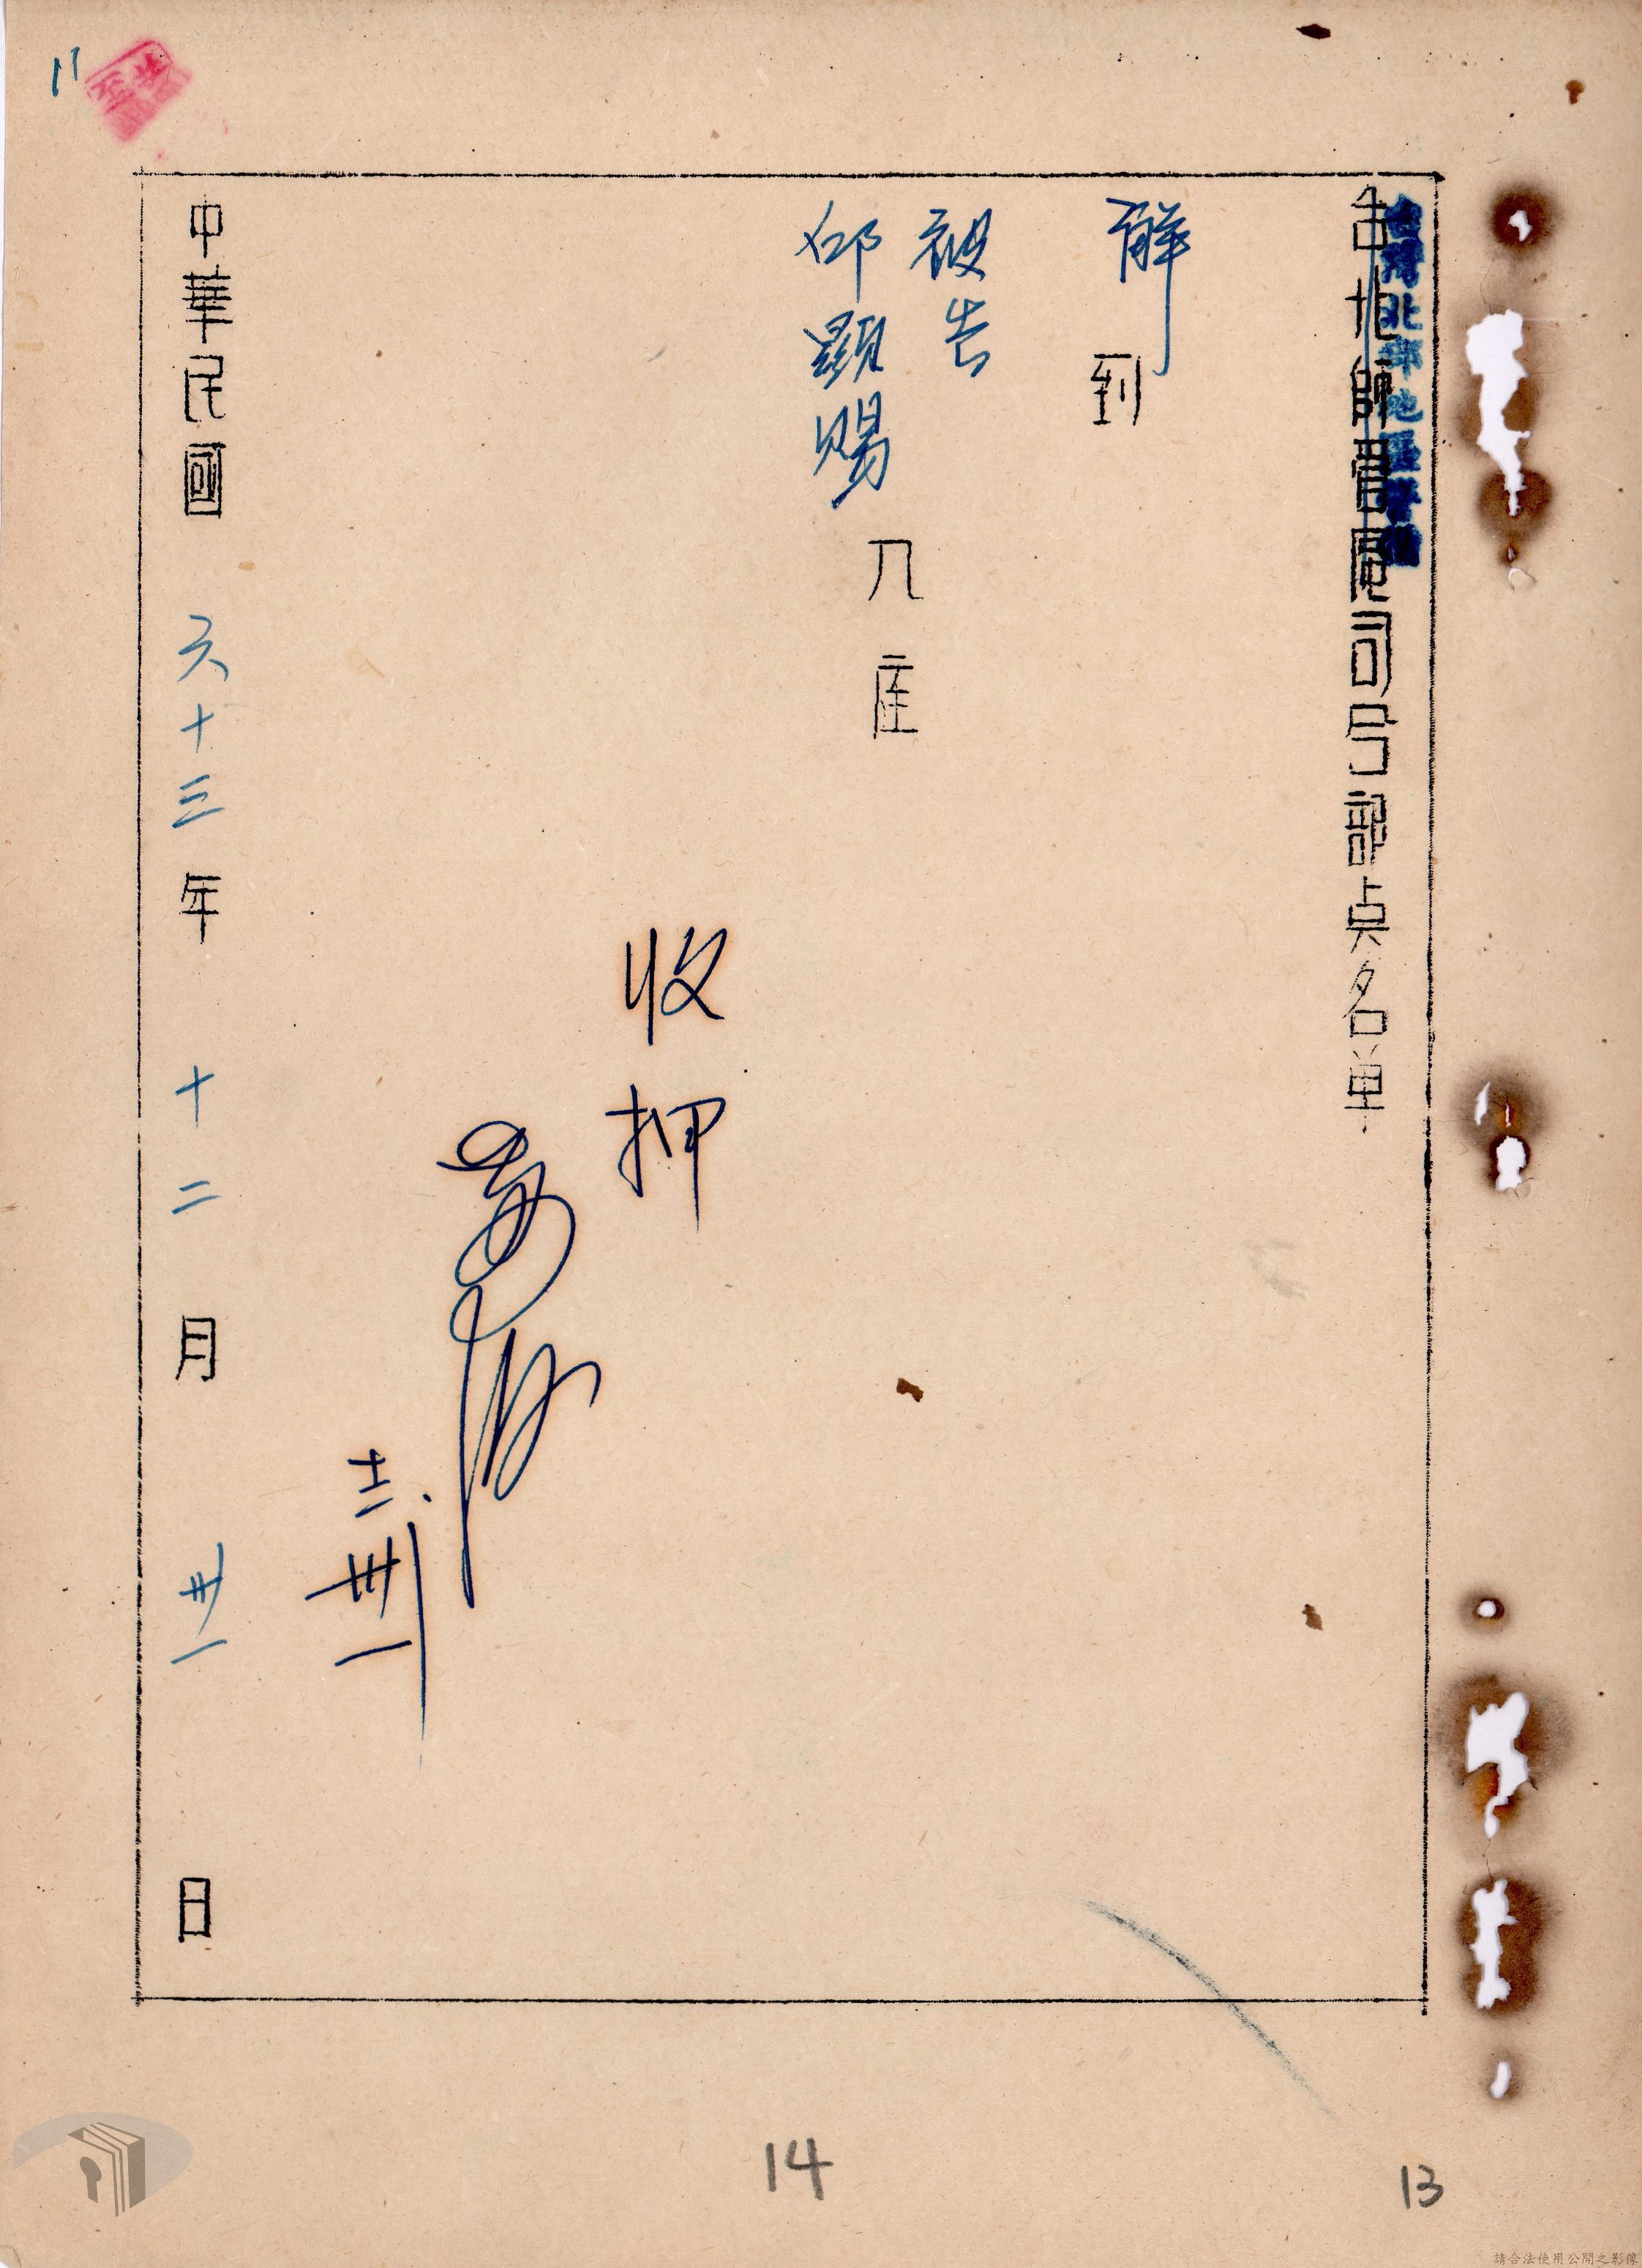 11
台灣北部地區警備
台北師管區司令部点名单
解到
被告
邱顯賜
收押
十二.
卅一
中華民國 六十三年 十二月 卅一日
14
13
請合法使用公開之影像